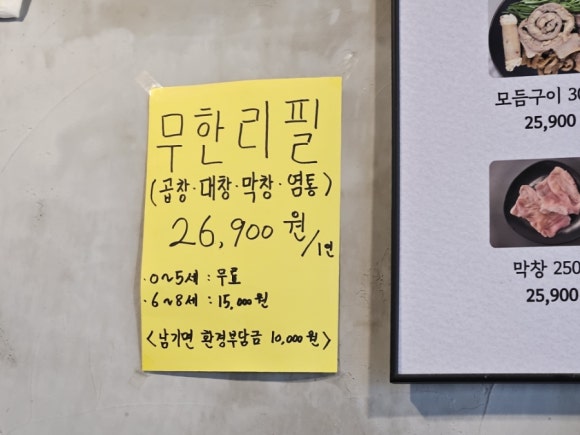 무한리필
(곱창·대창·막창·염통)
26,900원/1인
·0~5세 : 무료
·6~8세 : 15,000원
<남기면 환경부담금 10,000원>
모듬구이 30
25,900
막창 250
25,900